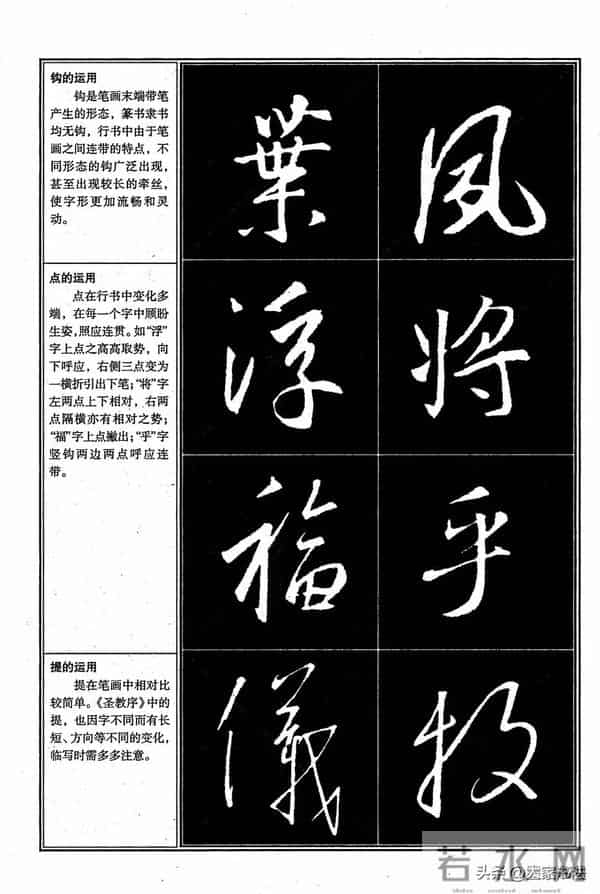 钩的运用
钩是笔画末端带笔
产生的形态，篆书隶书
均无钩，行书中由于笔
画之间连带的特点，不
同形态的钩广泛出现，
甚至出现较长的牵丝，
使字形更加流畅和灵
动。
葉
夙
点的运用
点在行书中变化多
端，在每一个字中顾盼
生姿，照应连贯。如“浮”
字上点之高高取势，向
下呼应，右侧三点变为
一横折引出下笔；“将”字
左两点上下相对，右两
点隔横亦有相对之势；
“福”字上点撇出；“乎”字
竖钩两边两点呼应连
带。
浮
将
福
乎
提的运用
提在笔画中相对比
较简单。《圣教序》中的
提，也因字不同而有长
短、方向等不同的变化，
临写时需多多注意。
儀
若水网
头条